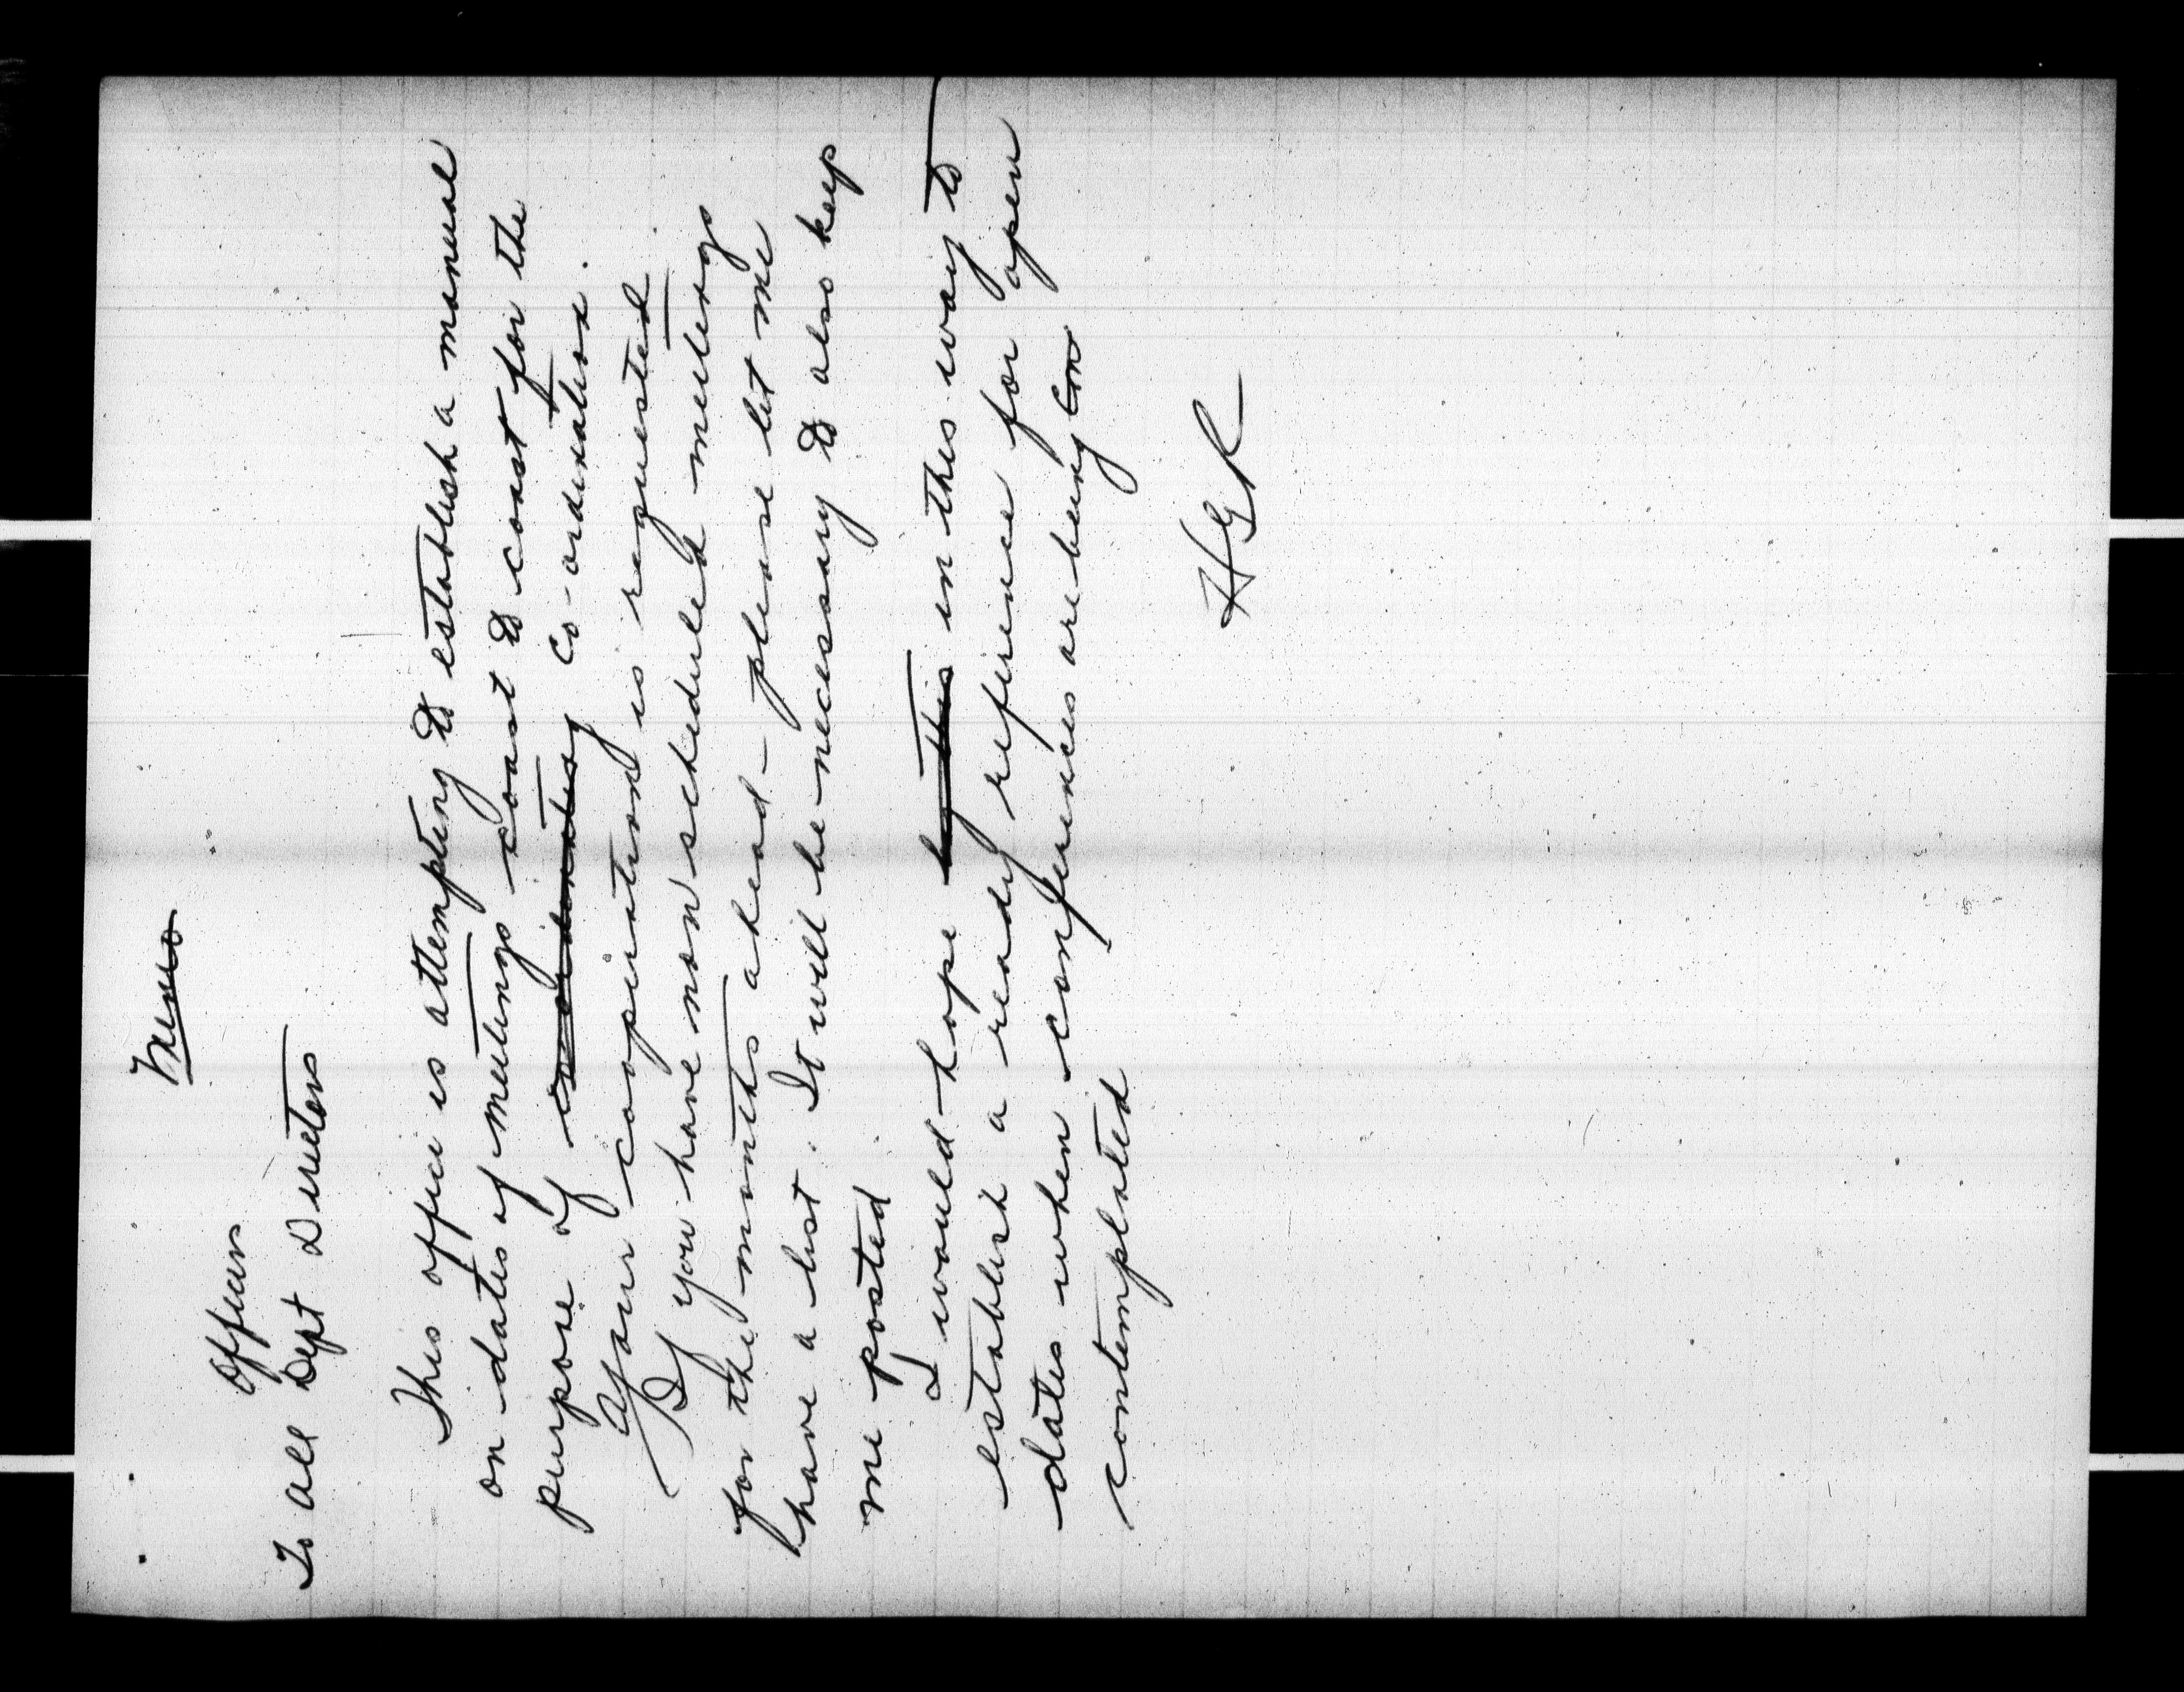 Memo
Officers
To all Dept Directors
This office is attempting to establish a manual
on dates of meetings coast to coast for the
purpose of coordinating co-ordination.
Your cooperation is requested
If you have non scheduled meetings
for the months ahead - please let me
have a list. It will be necessary to also keep
me posted
I would hope by this in this way to
establish a ready reference for open
dates when conferences are being con
contemplated
HGR